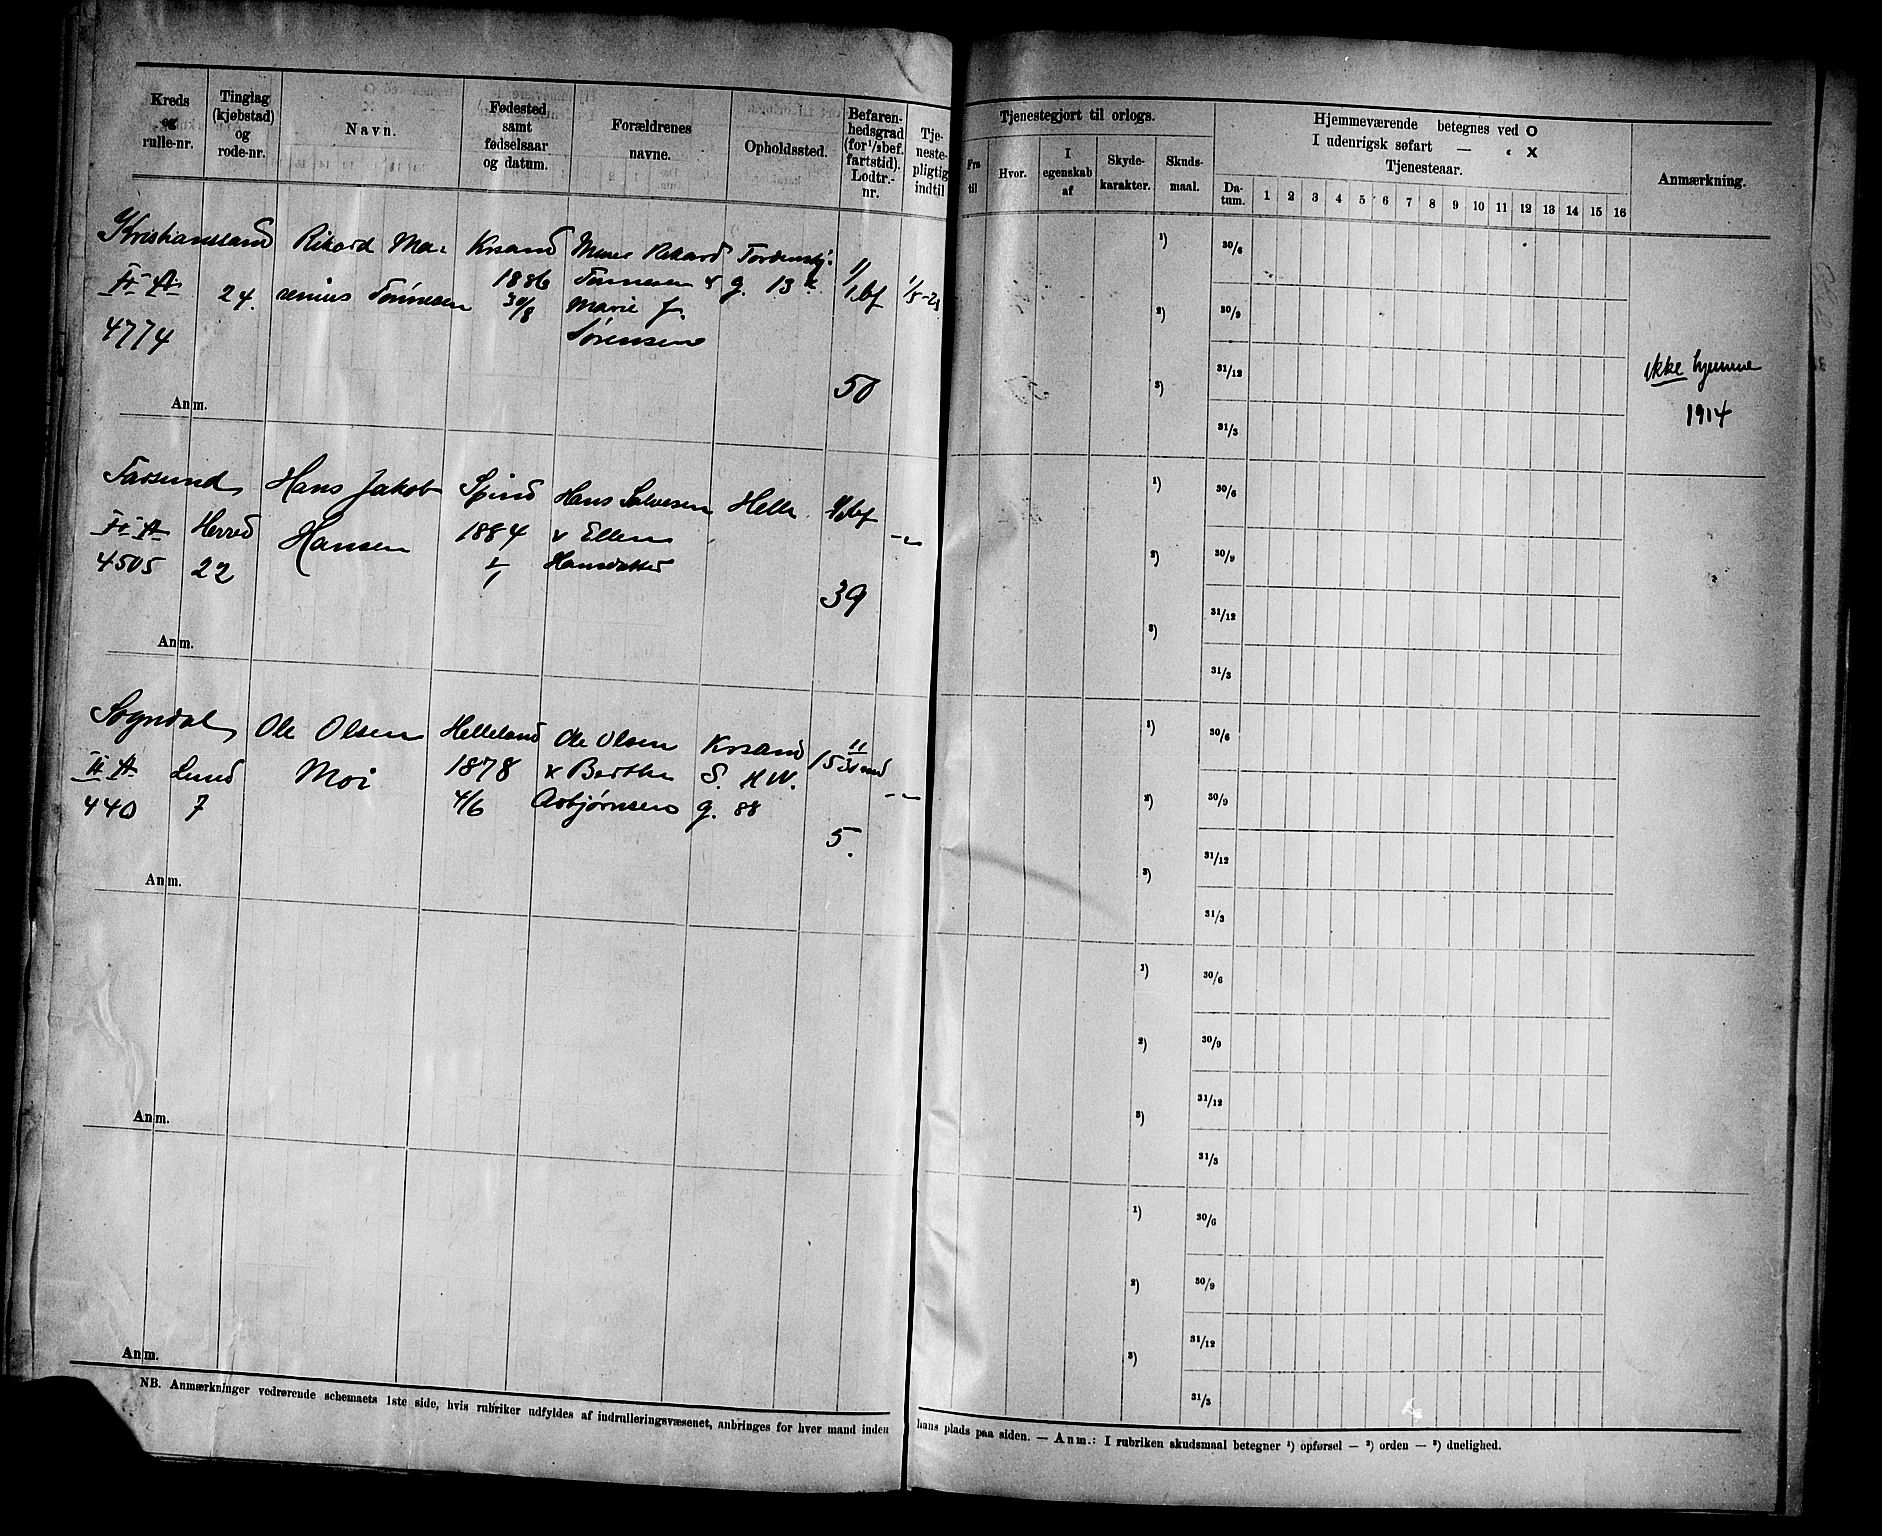 Kreds og rulle-nr.
Tinglag (kjøbstad) og rode-nr.
Navn.
Fødested samt fødselsaar og datum.
Forældrenes navne.
Opholdssted.
Befaren-hedsgrad (for 1/2 bef. fartstid). Lodtr.-nr.
Tje-neste-pligtig indtil
Tjenestegjort til orlogs.
Fra til
Hvor.
I egenskab af
Skyde-karakter.
Skuds-maal.
Hjemmeværende betegnes ved O
I udenrigsk søfart — „ X
Tjenesteaar.
Da-tum.
1 2 3 4 5 6 7 8 9 10 11 12 13 14 15 16
Anmærkning.
Kristianssand
II A
4774
24.
Rikard Ma-
renius Tønnesen
Krsand
1886
30/8
Rikard
Tønnesen &
Marie J.
Sørensen
Tordenskj.
g. 13
1/1 bf
50
ikke hjemme
1914
Anm.
1) 30/6
2) 30/9
3) 31/12
31/3
Farsund
II A
4505
Herred
22
Hans Jakob
Hansen
Spind
1884
Hans Salvesen
& Ellen
Hansdatter
Helle
1/1 bf
39
-"-
Anm.
1) 30/6
2) 30/9
3) 31/12
31/3
Sogndal
II A
440
Lund
7
Ole Olsen
Moi
Helleland
1878
4/6
Ole Olsen
& Berthe
Asbjørnsen
Krsand
S. H W.
g. 88
5.
-"-
Anm.
1) 30/6
2) 30/9
3) 31/12
31/3
Anm.
1) 30/6
2) 30/9
3) 31/12
31/3
Anm.
1) 30/6
2) 30/9
3) 31/12
31/3
NB. Anmærkninger vedrørende schemaets 1ste side, hvis rubriker udfyldes af indrulleringsvæsenet, anbringes for hver mand inden hans plads paa siden. — Anm.: I rubriken skudsmaal betegner 1) opførsel — 2) orden — 3) duelighed.